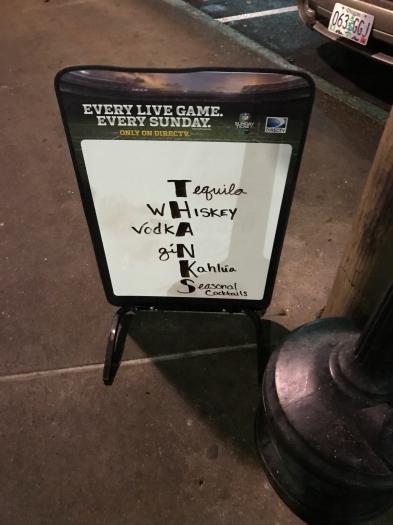 063 GGJ
EVERY LIVE GAME.
EVERY SUNDAY.
ONLY ON DIRECTV.
SUNDAY TICKET
DIRECTV
Tequila
WHISKEY
Vodka
gin
Kahlúa
Seasonal
Cocktails